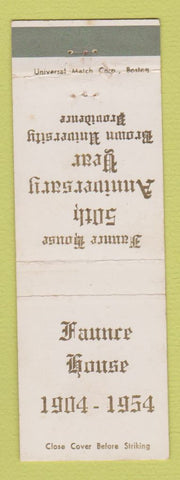 Universal Match Corp., Boston
Faunce House
50th
Anniversary
Year
Brown University
Providence
Faunce
House
1904 - 1954
Close Cover Before Striking